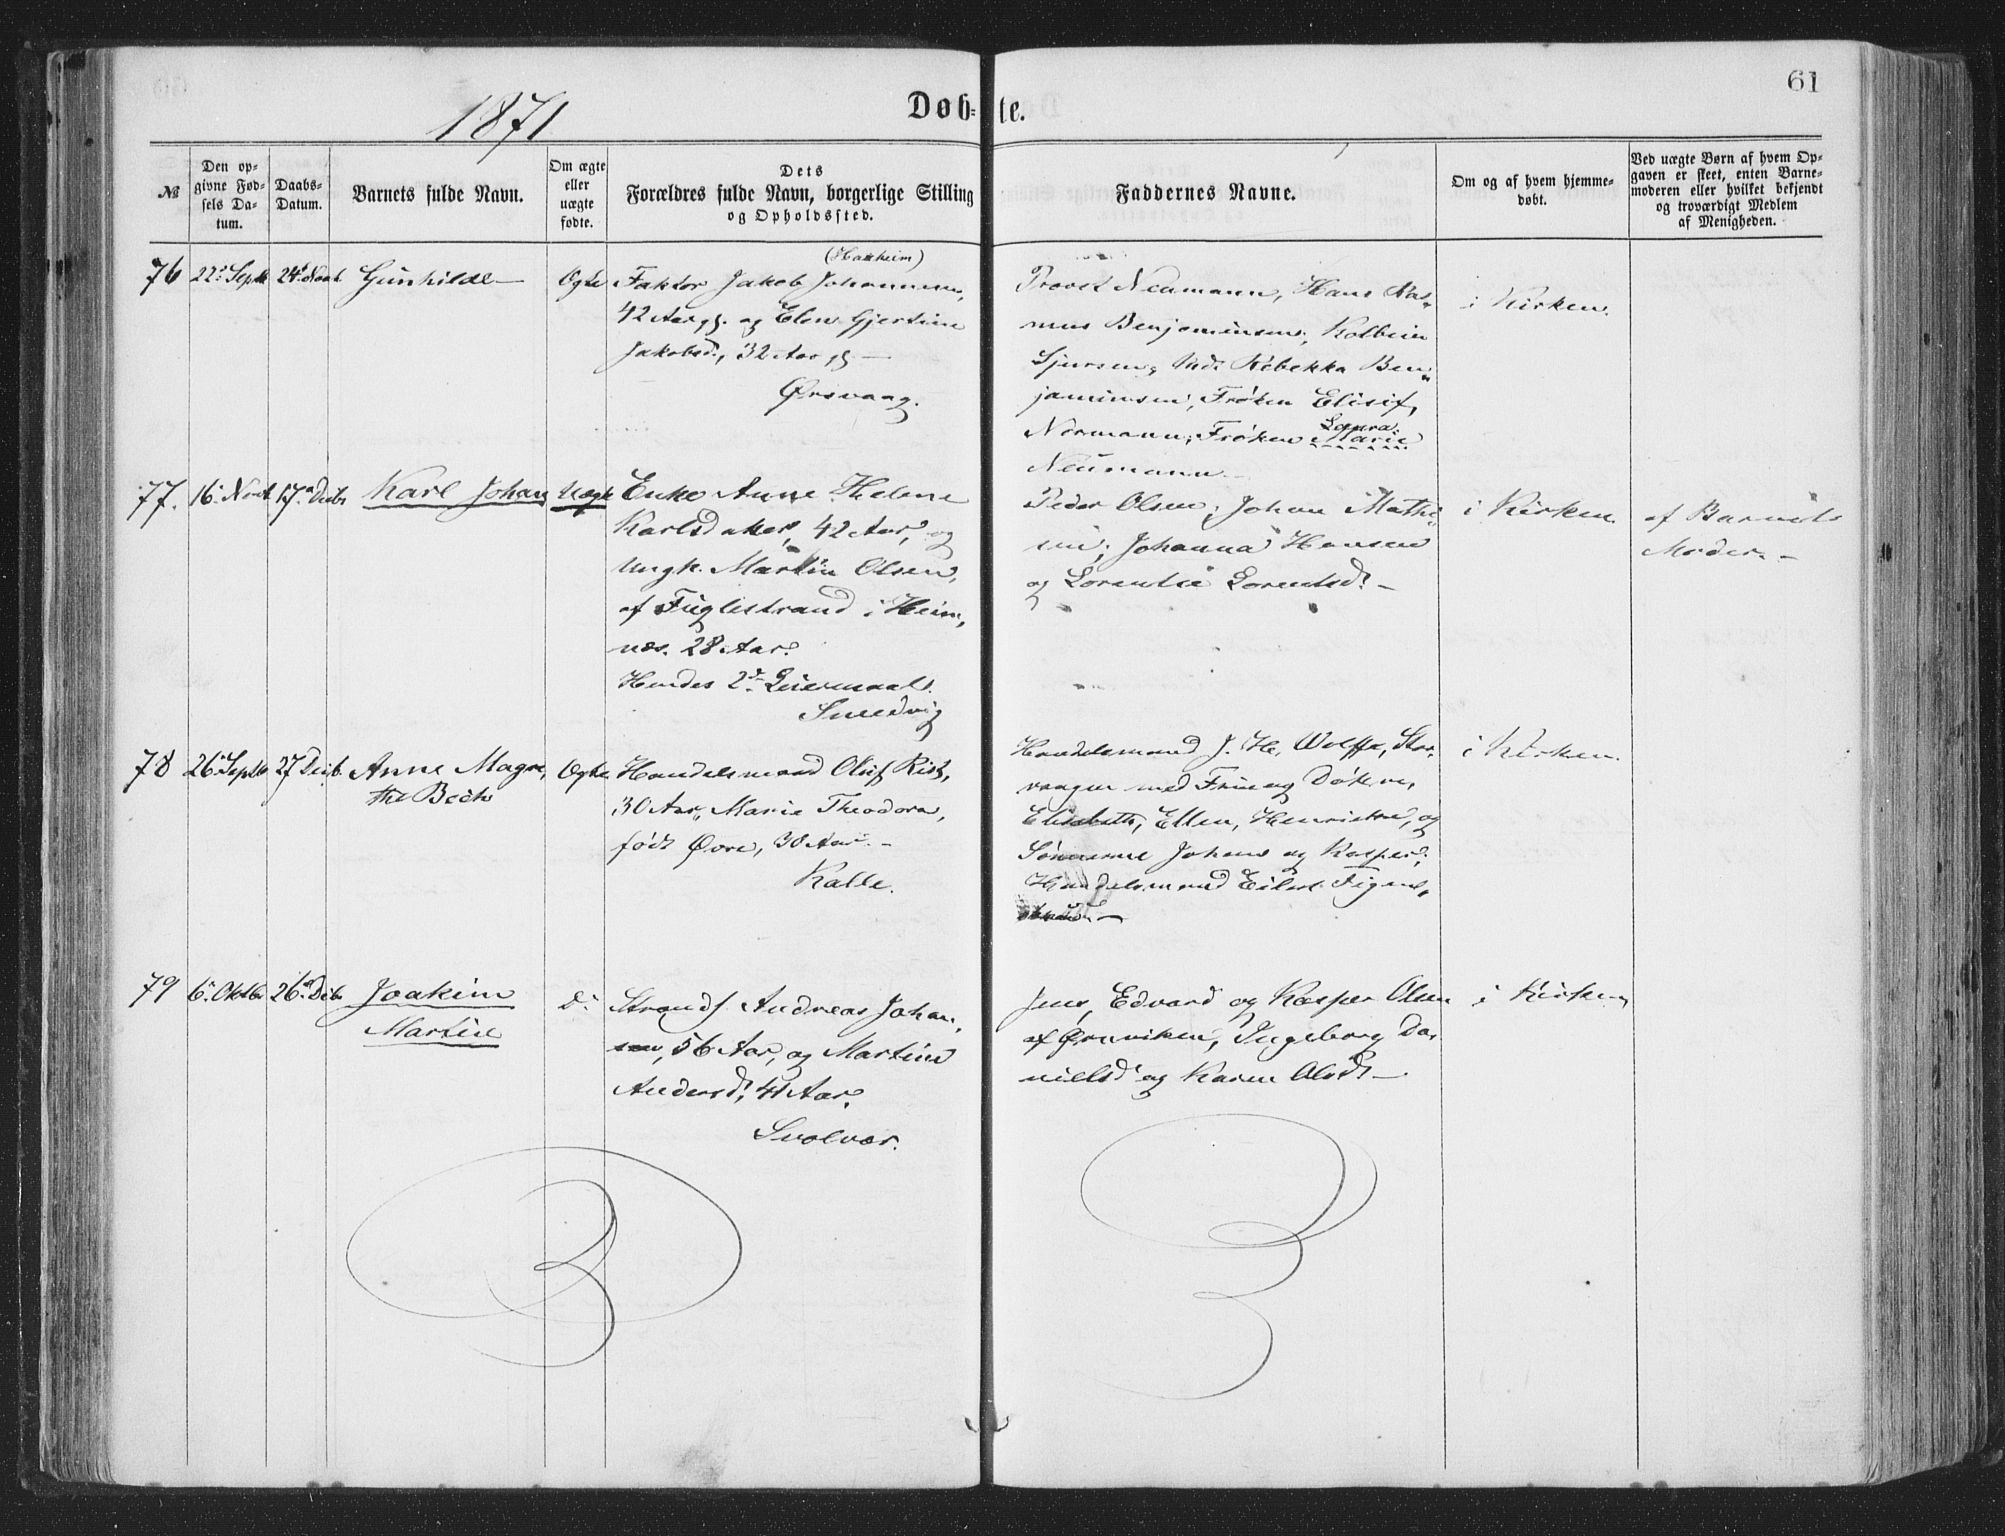 61
1871
Døb-te.
№
Den op-
givne Fød-
sels Da-
tum.
Daabs-
Datum.
Barnets fulde Navn.
Om ægte
eller
uægte
fødte.
Dets
Forældres fulde Navn, borgerlige Stilling
og Opholdssted.
Faddernes Navne.
Om og af hvem hjemme-
døbt.
Ved uægte Børn af hvem Op-
gaven er skeet, enten Barne-
moderen eller hvilket bekjendt
og troværdigt Medlem
af Menigheden.
76
22 Septb
24 Novb
Gunhilde
Ægte
(Hattheim)
Faktor Jakob Johannesen,
42 Aar gl. og Elen Gjertine
Jakobsd., 32 Aar gl.
Ørsvaag.
Provst Neumann, Hans Ras-
mus Benjaminsen, Kolbein
Sjursen, Md. Rebekka Ben-
jaminsen, Frøken Elisif
Normann, Frøken Marie
Laura
Neumann
i Kirken.
77.
16 Novb
17 Decbr
Karl Johan
Uægte
Enke Anne Helene
Karlsdatter, 42 Aar, og
Ungk. Martin Olsen,
af Fuglestrand i Hem-
næs. 28 Aar.
Hendes 2d Leiermaal.
Smedvig
Peder Olsen, Johan Mathi-
sen, Johanna Hansen
og Lorentse Lorentsd.
i Kirken
af Barnets
Moder.
78
26 Septb
27 Decb.
Anne Magre-
the Bech
Ægte
Handelsmand Oluf Rist,
30 Aar, Marie Theodora,
født Øvre, 30 Aar.
Kalle.
Handelsmand J. H. Wolff, Stor-
vaagen med Frue og Døtrene,
Elisabeth, Ellen, Henriette, og
Sønnerne Johans og Kasper,
Handelsmand Eilert Figen-
i Kirken.
79
6 Oktbr
26 Decbr
Joakim
Martin
Do
Strands. Andreas Johan-
sen, 56 Aar, og Martine
Andersd., 41 Aar.
Svolvær.
Jens, Edvard og Kasper Olsen
af Ørnviken, Ingeborg Da-
nielsd og Karen Olsd.
i Kirken